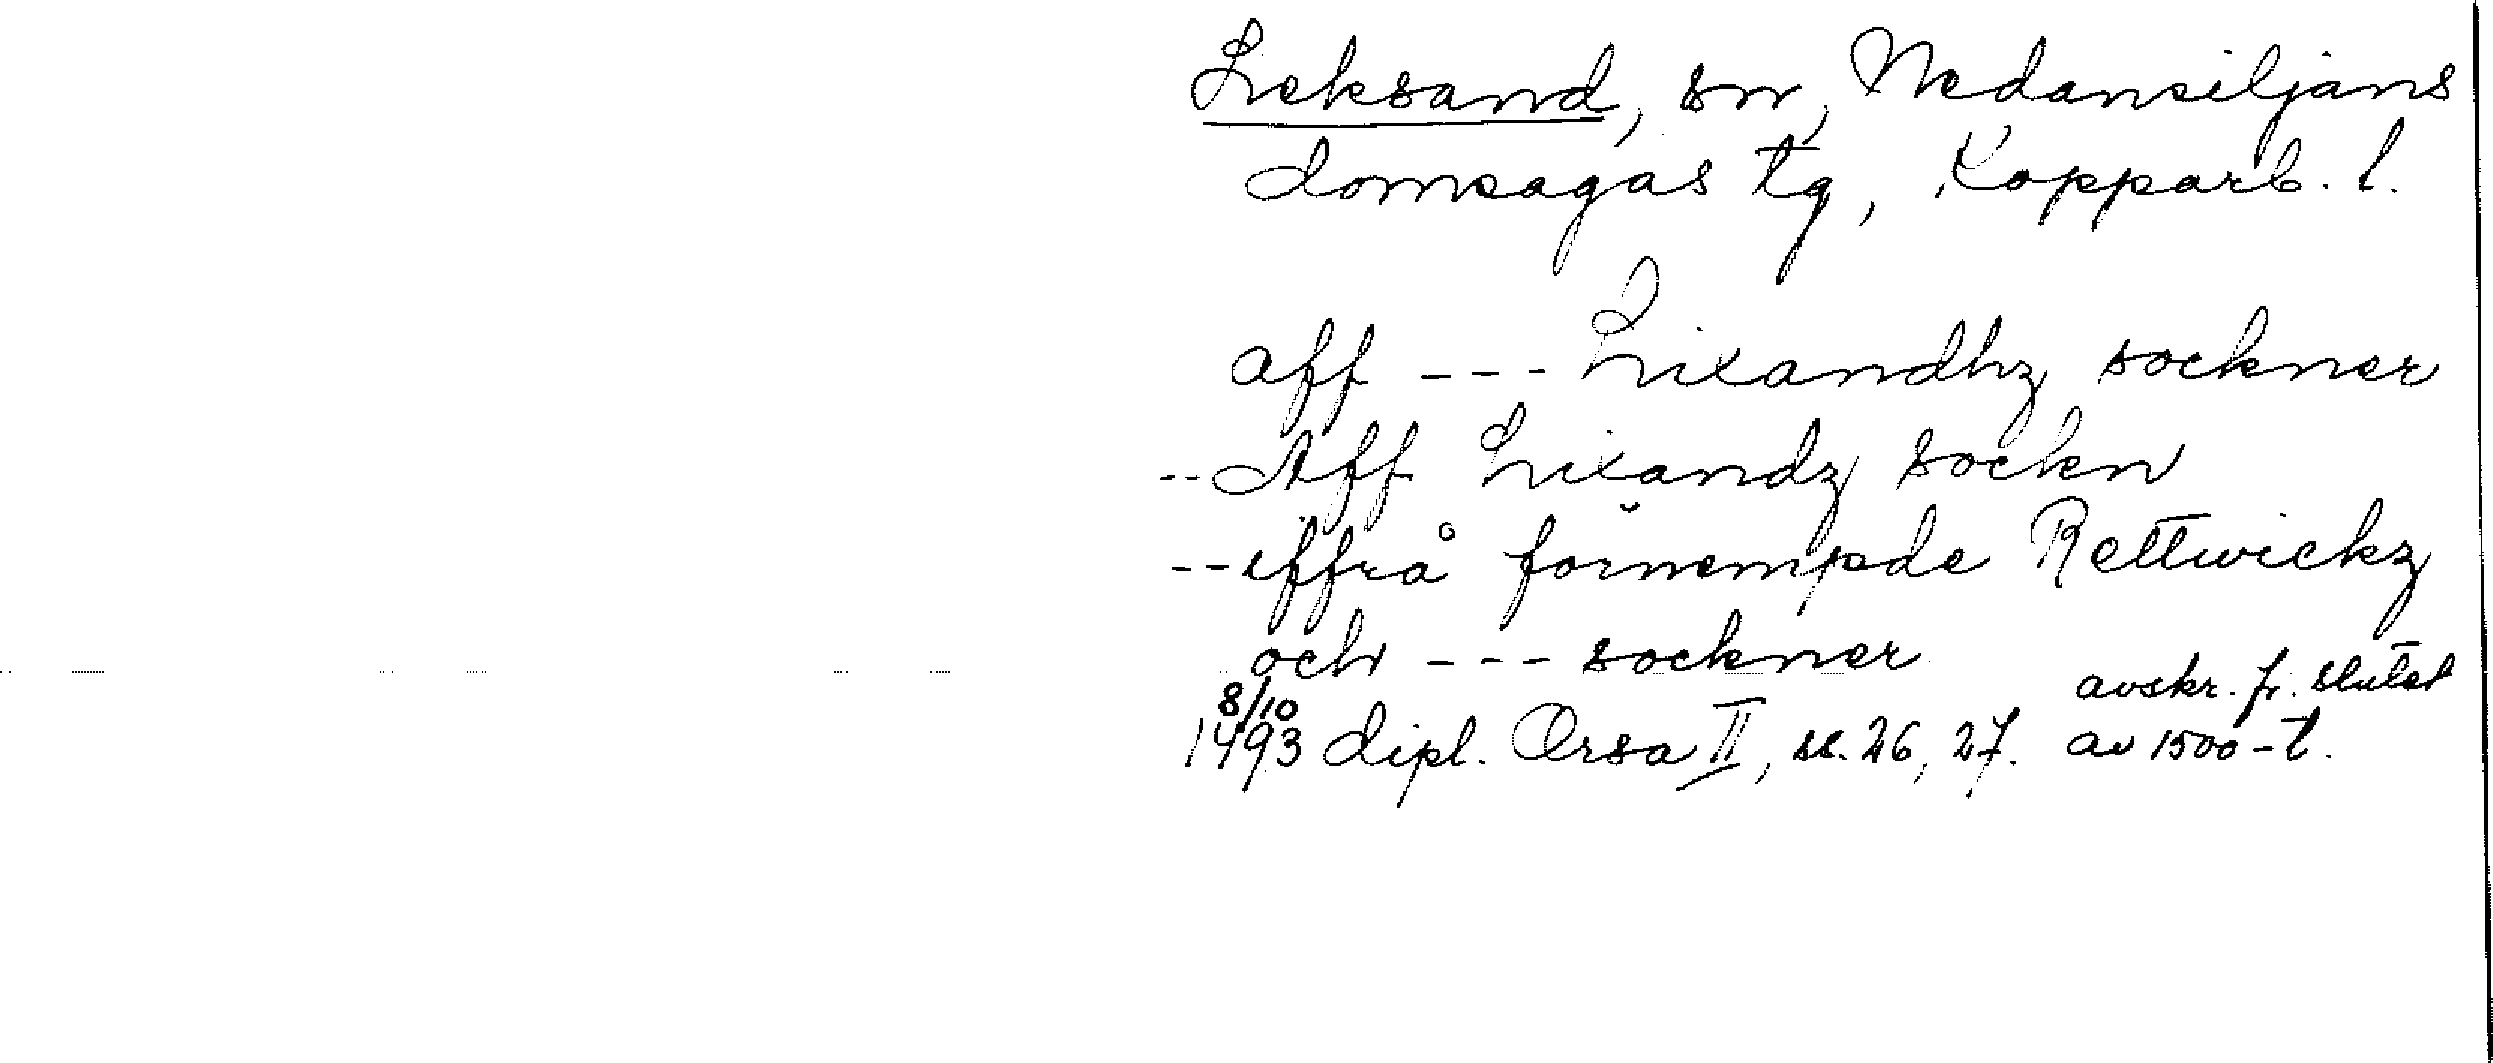 Leksand, sn, Nedansiljans
domsagas tg, Kopparb. l.
aff --- Lixandhz sockner
-- Aff Lixandz sockn
-- iffrå förnempde Rettwickz
och --- sockner
8/10
1493 dipl. Orsa II, sl. 26, 27. avskr. fr. slutet
av 1500-t.